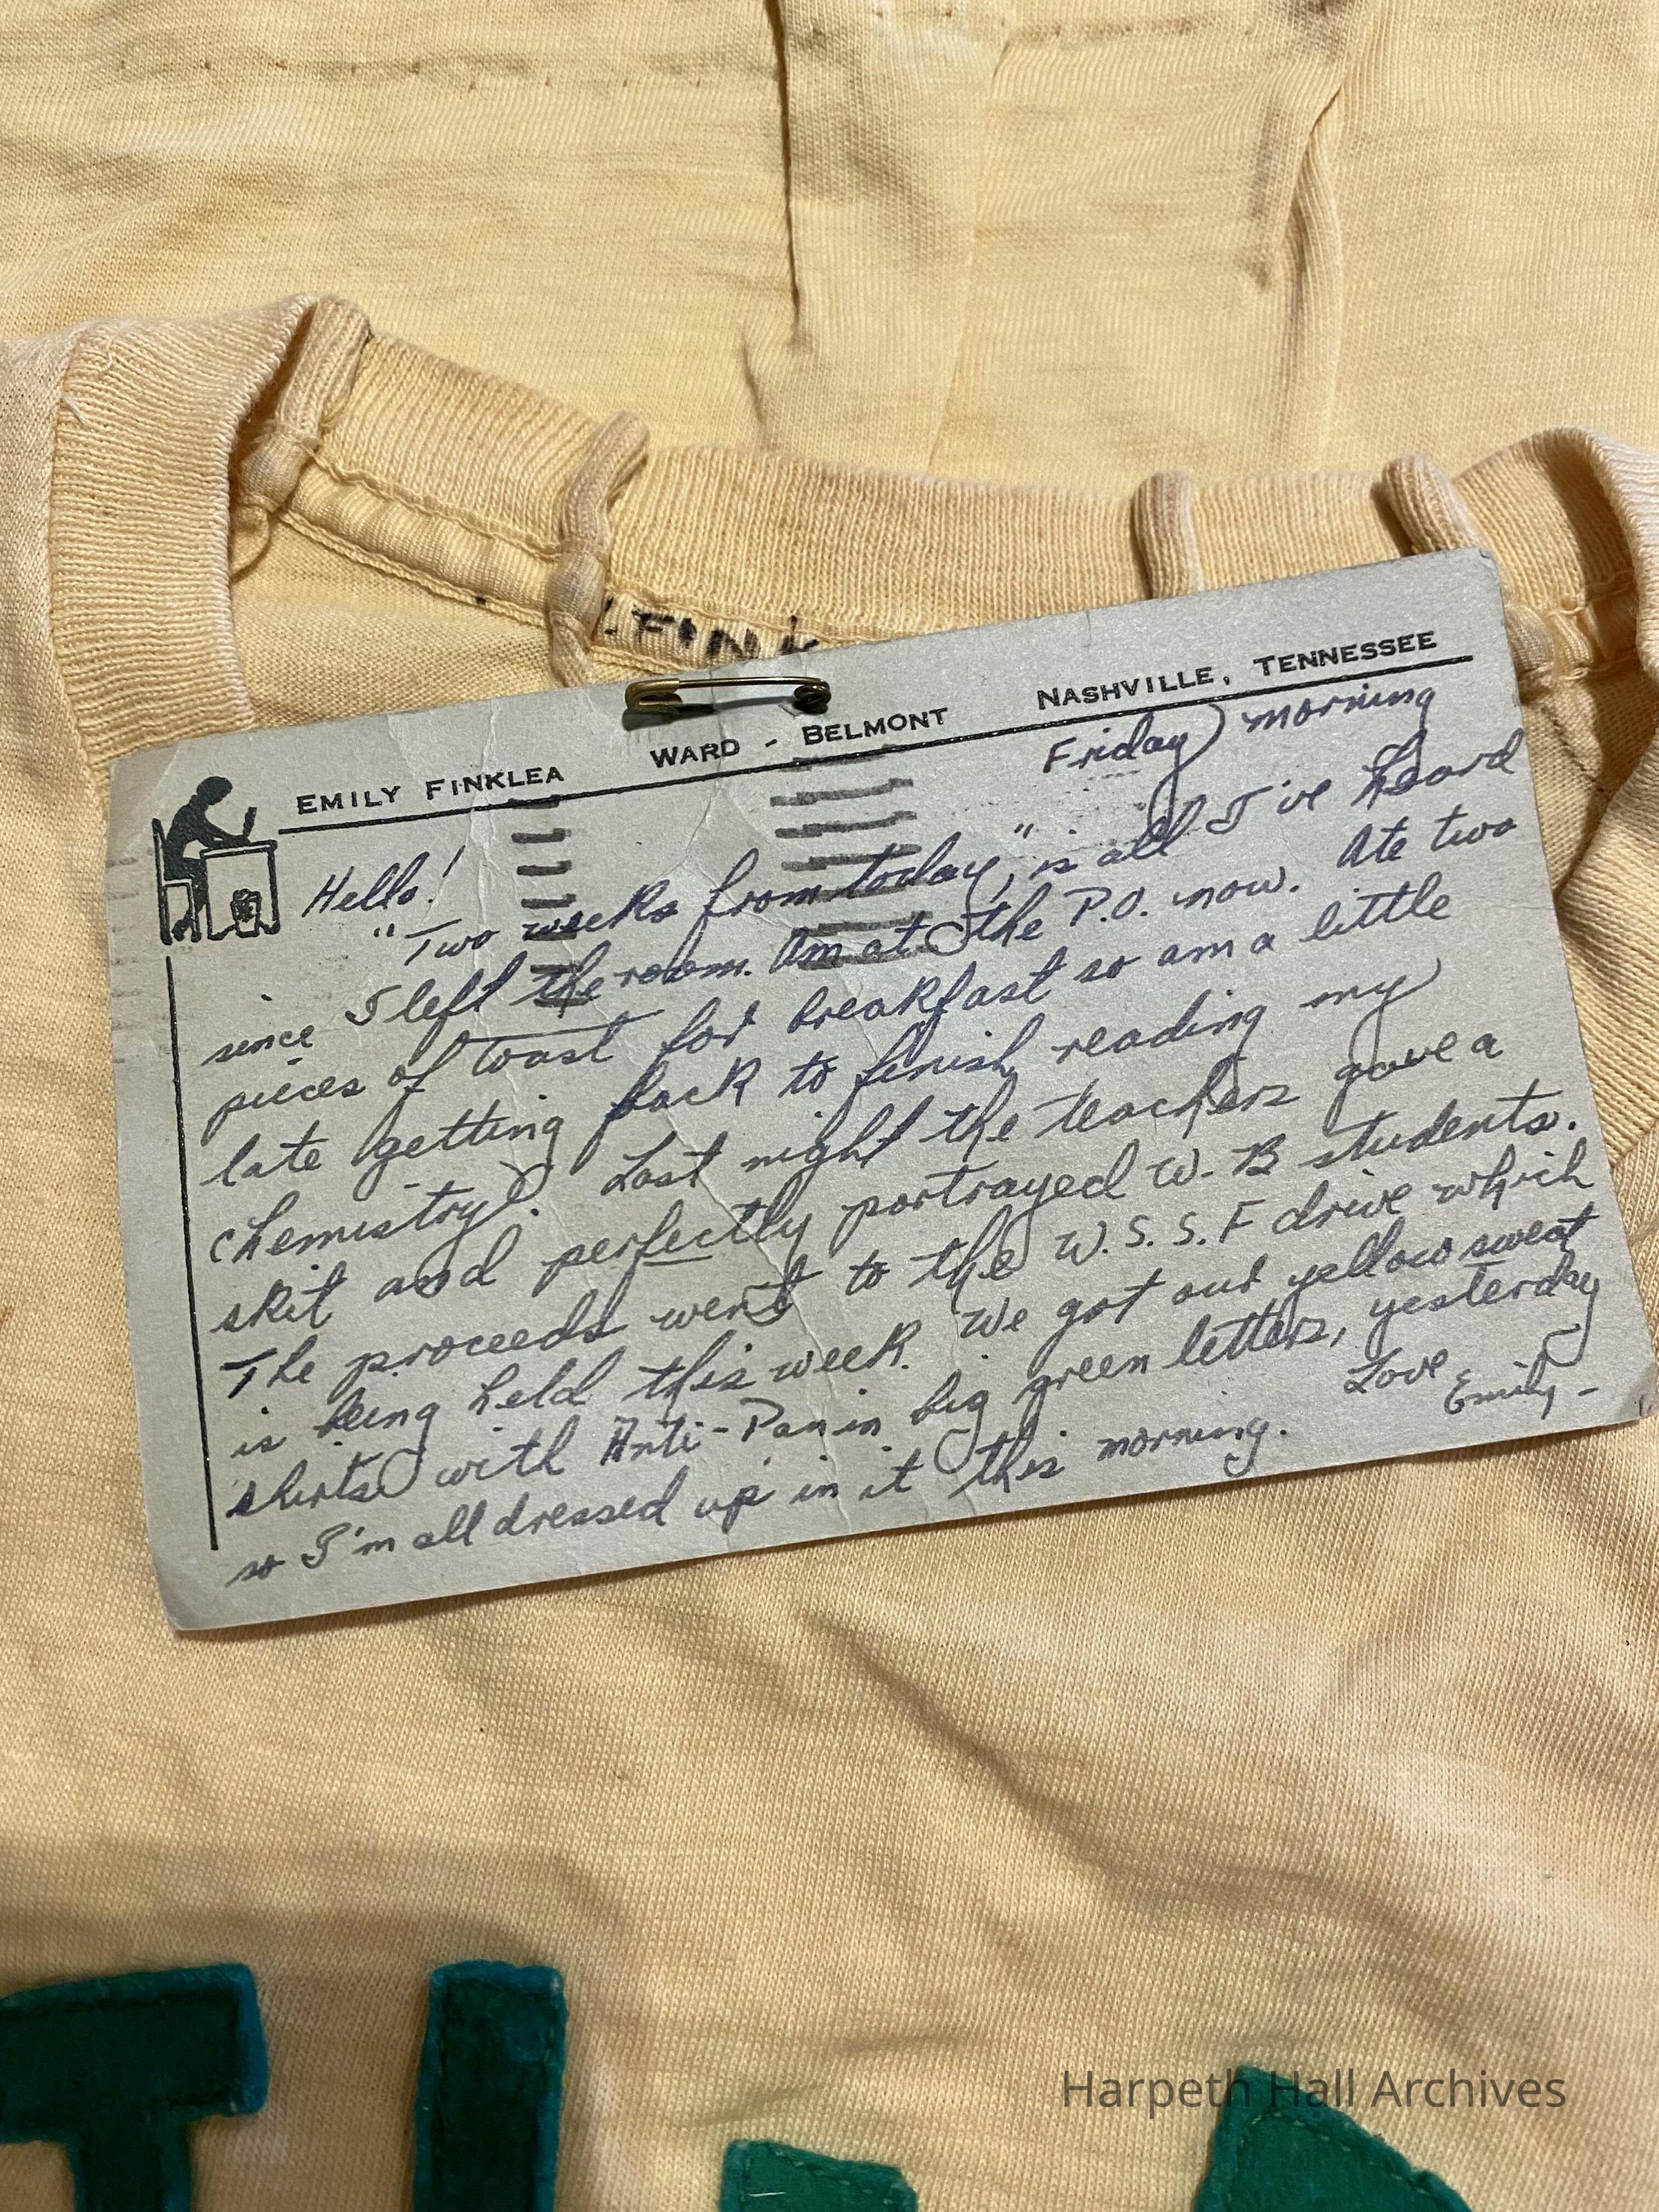 FINK
EMILY FINKLEA WARD - BELMONT NASHVILLE, TENNESSEE
Friday morning
Hello!
"Two weeks from today," is all I've heard
since I left the room. Am at the P.O. now. Ate two
pieces of toast for breakfast so am a little
late getting back to finish reading my
chemistry. Last night the teachers gave a
skit and perfectly portrayed W. B students.
The proceeds went to the W. S. S. F drive which
is being held this week. We got our yellow sweat
shirts with Anti-Pan in big green letters, yesterday
so I'm all dressed up in it this morning. Love
Emily -
Harpeth Hall Archives